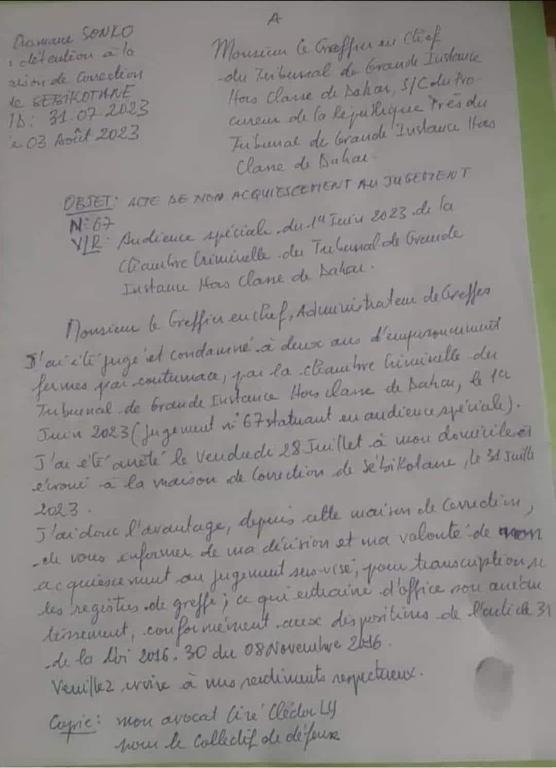 Ousmane SONKO
détention à la
maison de Correction
de SEBIKOTANE
: 31.07.2023
le 03 Août 2023
A
Monsieur le Greffier en Chef
du Tribunal de Grande Instance
Hors Classe de Dakar, S/C du Pro-
cureur de la République Près du
Tribunal de Grande Instance Hors
Classe de Dakar.
OBJET: ACTE DE NON ACQUIESCEMENT AU JUGEMENT
N° 67
V/R: Audience spéciale du 1er Juin 2023 de la
Chambre Criminelle du Tribunal de Grande
Instance Hors Classe de Dakar.
Monsieur le Greffier en chef, Administrateur de Greffes
J'ai été jugé et condamné à deux ans d'emprisonnement
fermes par contumace, par la Chambre Criminelle du
Tribunal de Grande Instance Hors classe de Dakar, le 1er
Juin 2023 (jugement n° 67 statuant en audience spéciale).
J'ai été arrêté le Vendredi 28 Juillet à mon domicile et
écroué à la maison de Correction de Sébikotane, le 31 Juillet
2023.
J'ai donc l'avantage, depuis cette maison de Correction,
de vous informer de ma décision et ma volonté de non
acquiescement au jugement sus-visé, pour transcription su
les registres de greffe; ce qui entraîne d'office son anéan
tissement, conformément aux dispositions de l'article 31
de la Loi 2016.30 du 08 Novembre 2016.
Veuillez croire à mes sentiments respectueux.
Copie: mon avocat Ciré Clédor LY
pour le Collectif de défense